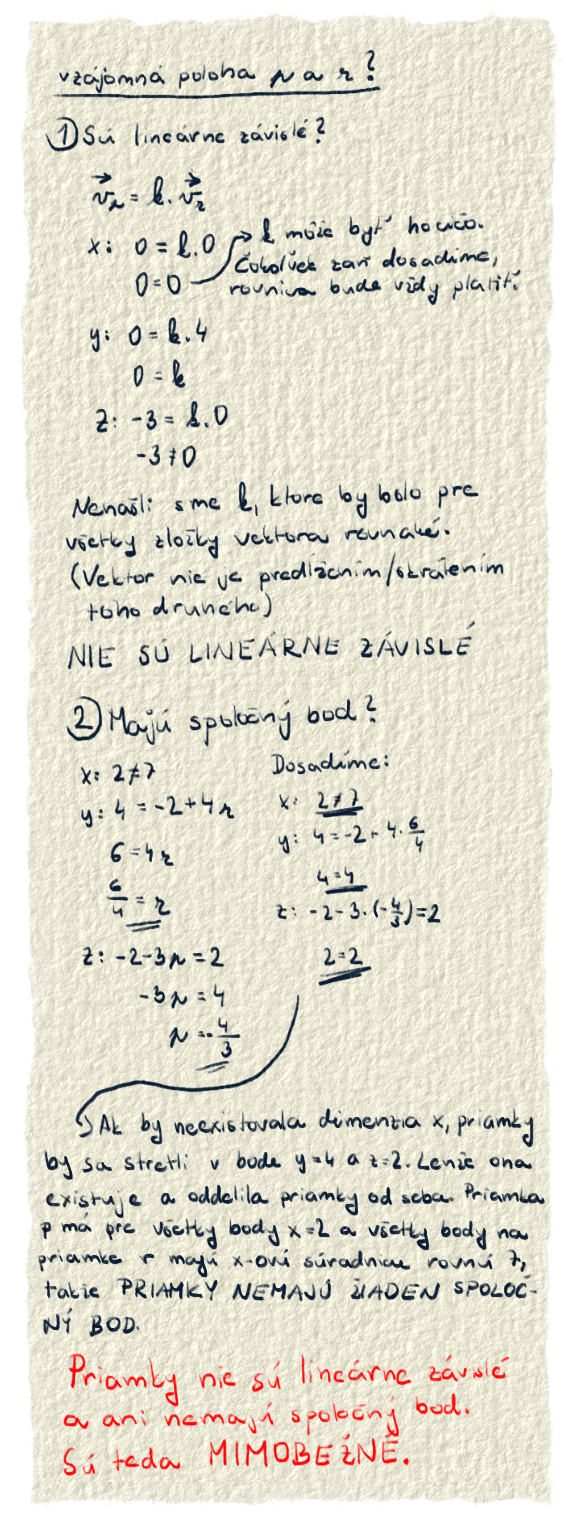 vzájomná poloha p a r?
① Sú lineárne závislé?
v⃗p = k. v⃗r
x: 0 = k.0 → k môže byť hocičo.
0 = 0 Čokoľvek zaň dosadíme,
rovnica bude vždy platiť.
y: 0 = k.4
0 = k
z: -3 = k.0
-3 ≠ 0
Nenašli sme k, ktoré by bolo pre
všetky zložky vektora rovnaké.
(Vektor nie je predĺžením/skrátením
toho druhého)
NIE SÚ LINEÁRNE ZÁVISLÉ
② Majú spoločný bod?
x: 2≠7
y: 4 = -2+4r
6 = 4r
6/4 = r
z: -2-3p = 2
-3p = 4
p = -4/3
Dosadíme:
x: 2≠7
y: 4 = -2+4.6/4
4=4
z: -2-3.(-4/3)=2
2=2
→ Ak by neexistovala dimenzia x, priamky
by sa stretli v bode y=4 a z=2. Lenže ona
existuje a oddelila priamky od seba. Priamka
p má pre všetky body x=2 a všetky body na
priamke r majú x-ovú súradnicu rovnú 7,
takže PRIAMKY NEMAJÚ ŽIADEN SPOLOČ-
NÝ BOD.
Priamky nie sú lineárne závislé
a ani nemajú spoločný bod.
Sú teda MIMOBEŽNÉ.